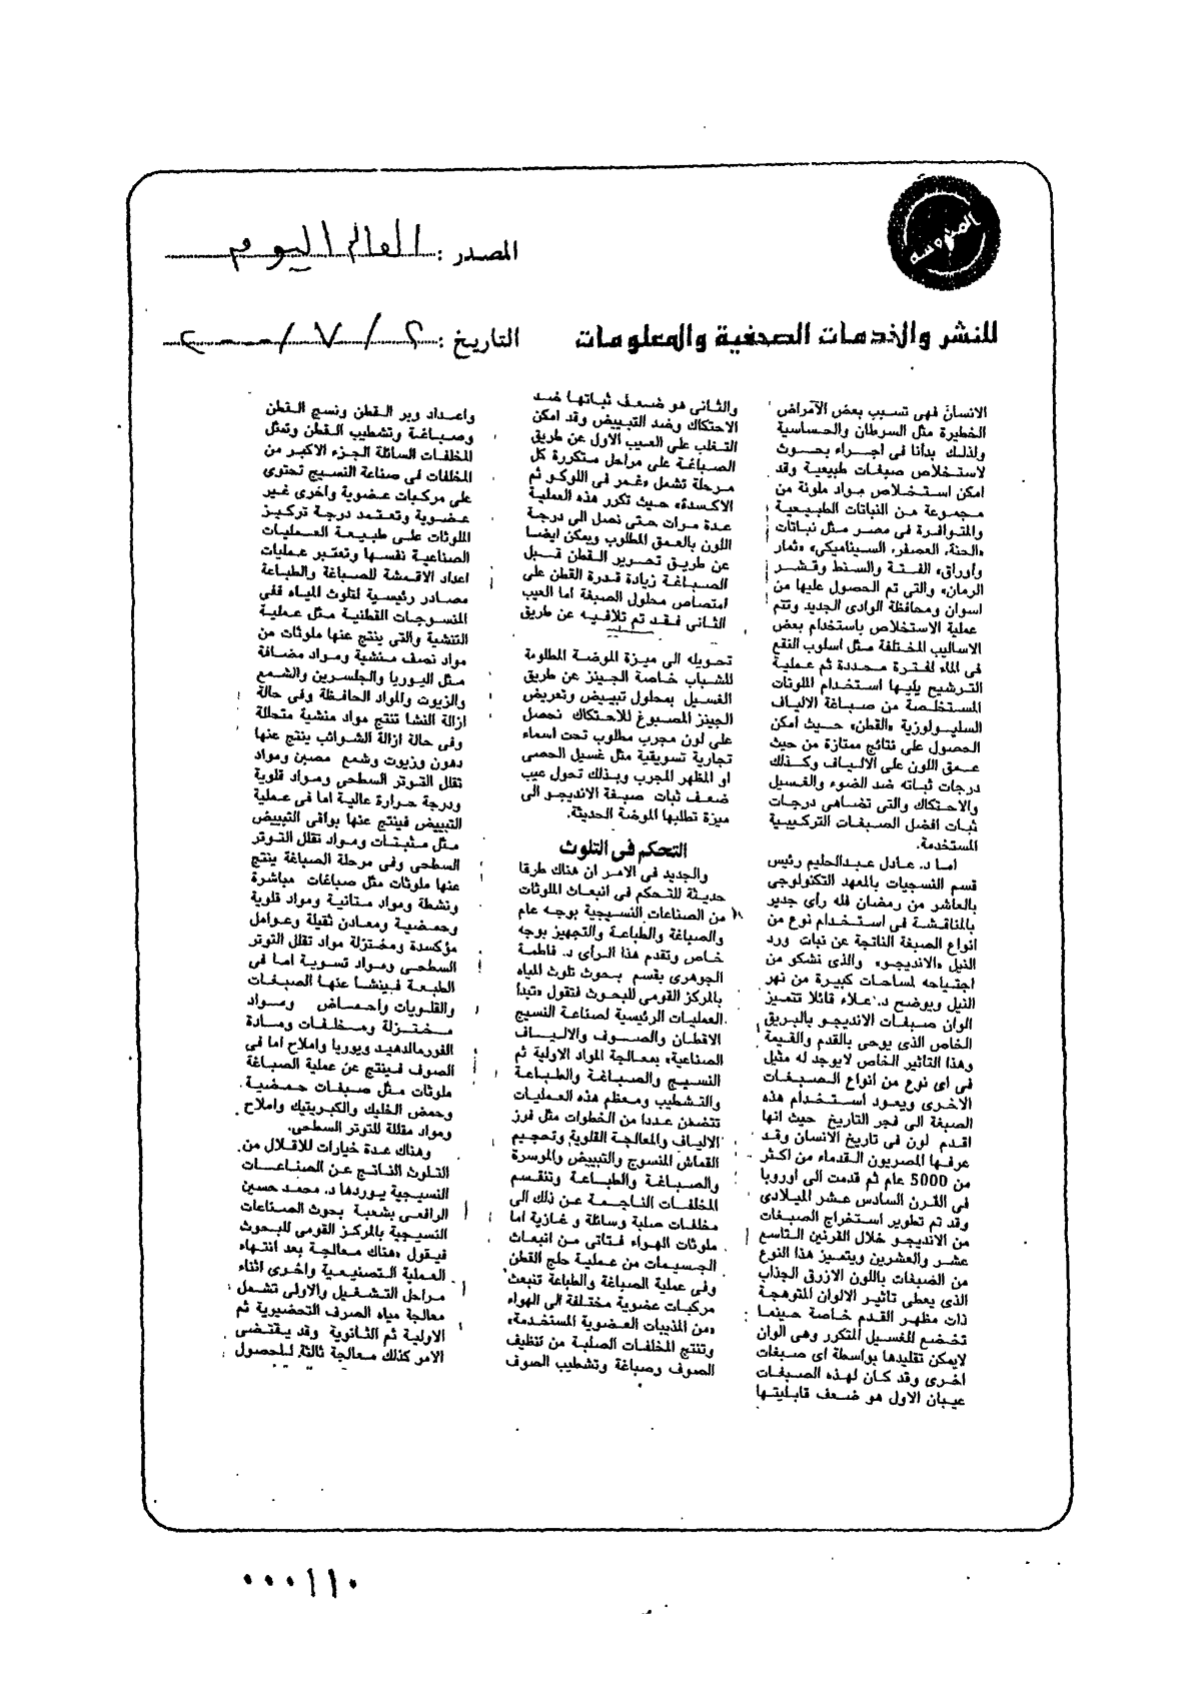 المحروسة
المصدر : العالم اليوم
للنشر والخدمات الصحفية والمعلومات
التاريخ : ٢ / ٧ / ٢٠٠٠
الانسان فهى تسبب بعض الأمراض
الخطيرة مثل السرطان والحساسية
ولذلك بدأنا فى اجراء بحوث
لاستخلاص صبغات طبيعية وقد
امكن استخلاص مواد ملونة من
مجموعة من النباتات الطبيعية
والمتوافرة فى مصر مثل نباتات
«الحنة، العصفر، السيناميكى» «ثمار
وأوراق» الفتنة والسنط وقشر
الرمان» والتى تم الحصول عليها من
اسوان ومحافظة الوادى الجديد وتتم
عملية الاستخلاص باستخدام بعض
الاساليب المختلفة مثل اسلوب النقع
فى الماء لفترة محددة ثم عملية
الترشيح يليها استخدام الملونات
المستخلصة من صباغة الالياف
السليولوزية «القطن» حيث أمكن
الحصول على نتائج ممتازة من حيث
عمق اللون على الالياف وكذلك
درجات ثباته ضد الضوء والغسيل
والاحتكاك والتى تضاهى درجات
ثبات افضل الصبغات التركيبية
المستخدمة.
اما د. عادل عبدالحليم رئيس
قسم النسجيات بالمعهد التكنولوجى
بالعاشر من رمضان فله رأى جدير
بالمناقشة فى استخدام نوع من
انواع الصبغة الناتجة عن نبات ورد
النيل «الانديجو» والذى نشكو من
اجتياحه لمساحات كبيرة من نهر
النيل ويوضح د. علاء قائلا تتميز
الوان صبغات الانديجو بالبريق
الخاص الذى يوحى بالقدم والقيمة
وهذا التأثير الخاص لايوجد له مثيل
فى اى نوع من انواع الصبغات
الاخرى ويعود استخدام هذه
الصبغة الى فجر التاريخ حيث انها
اقدم لون فى تاريخ الانسان وقد
عرفها المصريون القدماء من اكثر
من 5000 عام ثم قدمت الى اوروبا
فى القرن السادس عشر الميلادى
وقد تم تطوير استخراج الصبغات
من الانديجو خلال القرنين التاسع
عشر والعشرين ويتميز هذا النوع
من الصبغات باللون الازرق الجذاب
الذى يعطى تأثير الالوان المتوهجة
ذات مظهر القدم خاصة حينما
تخضع للغسيل المتكرر وهى الوان
لايمكن تقليدها بواسطة اى صبغات
اخرى وقد كان لهذه الصبغات
عيبان الاول هو ضعف قابليتها
والثانى هو ضعف ثباتها ضد
الاحتكاك وضد التبييض وقد امكن
التغلب على العيب الاول عن طريق
الصباغة على مراحل متكررة كل
مرحلة تشمل «غمر فى اللوكو ثم
الاكسدة» حيث تكرر هذه العملية
عدة مرات حتى نصل الى درجة
اللون بالعمق المطلوب ويمكن ايضا
عن طريق تحرير القطن قبل
الصباغة زيادة قدرة القطن على
امتصاص محلول الصبغة اما العيب
الثانى فقد تم تلافيه عن طريق
تحويله الى ميزة الموضة المطلوبة
للشباب خاصة الجينز عن طريق
الغسيل بمحلول تبييض وتعريض
الجينز المصبوغ للاحتكاك نحصل
على لون مجرب مطلوب تحت اسماء
تجارية تسويقية مثل غسيل الحصى
او المظهر المجرب وبذلك تحول عيب
ضعف ثبات صبغة الانديجو الى
ميزة تطلبها الموضة الحديثة.
التحكم فى التلوث
والجديد فى الامر ان هناك طرقا
حديثة للتحكم فى انبعاث الملوثات
من الصناعات النسيجية بوجه عام
والصباغة والطباعة والتجهيز بوجه
خاص وتقدم هذا الرأى د. فاطمة
الجوهرى بقسم بحوث تلوث المياه
بالمركز القومى للبحوث فتقول «تبدأ
العمليات الرئيسية لصناعة النسيج
الاقطان والصوف والالياف
الصناعية» بمعالجة المواد الاولية ثم
النسيج والصباغة والطباعة
والتشطيب ومعظم هذه العمليات
تتضمن عددا من الخطوات مثل فرز
الالياف والمعالجة القلوية وتحجيم
القماش المنسوج والتبييض والموسرة
والصباغة والطباعة وتنقسم
المخلفات الناجمة عن ذلك الى
مخلفات صلبة وسائلة و غازية اما
ملوثات الهواء فتأتى من انبعاث
الجسيمات من عملية حلج القطن
وفى عملية الصباغة والطباعة تنبعث
مركبات عضوية مختلفة الى الهواء
«من المذيبات العضوية المستخدمة»
وتنتج المخلفات الصلبة من تنظيف
الصوف وصباغة وتشطيب الصوف
واعداد وبر القطن ونسج القطن
وصباغة وتشطيب القطن وتمثل
المخلفات السائلة الجزء الاكبر من
المخلفات فى صناعة النسيج تحتوى
على مركبات عضوية واخرى غير
عضوية وتعتمد درجة تركيز
الملوثات على طبيعة العمليات
الصناعية نفسها وتعتبر عمليات
اعداد الاقمشة للصباغة والطباعة
مصادر رئيسية لتلوث المياه ففى
المنسوجات القطنية مثل عملية
التنشية والتى ينتج عنها ملوثات من
مواد نصف منشية ومواد مضافة
مثل اليوريا والجلسرين والشمع
والزيوت والمواد الحافظة وفى حالة
ازالة النشا تنتج مواد منشية متحللة
وفى حالة ازالة الشوائب ينتج عنها
دهون وزيوت وشمع مصبن ومواد
تقلل التوتر السطحى ومواد قلوية
ودرجة حرارة عالية اما فى عملية
التبييض فينتج عنها بواقى التبييض
مثل مثبتات ومواد تقلل التوتر
السطحى وفى مرحلة الصباغة ينتج
عنها ملوثات مثل صباغات مباشرة
ونشطة ومواد ستانية ومواد قلوية
وحمضية ومعادن ثقيلة وعوامل
مؤكسدة ومختزلة مواد تقلل التوتر
السطحى ومواد تسوية اما فى
الطبعة فينشأ عنها الصبغات
والقلويات واحماض ومواد
مختزلة ومخلفات ومادة
الفورمالدهيد ويوريا واملاح اما فى
الصوف فينتج عن عملية الصباغة
ملوثات مثل صبغات حمضية
وحمض الخليك والكبريتيك واملاح
ومواد مقللة للتوتر السطحى.
وهناك عدة خيارات للاقلال من
التلوث الناتج عن الصناعات
النسيجية يوردها د. محمد حسين
الرافعى بشعبة بحوث الصناعات
النسيجية بالمركز القومى للبحوث
فيقول «هناك معالجة بعد انتهاء
العملية التصنيعية واخرى اثناء
مراحل التشغيل والاولى تشمل
معالجة مياه الصرف التحضيرية ثم
الاولية ثم الثانوية وقد يقتضى
الامر كذلك معالجة ثالثة للحصول
٠٠٠١١٠